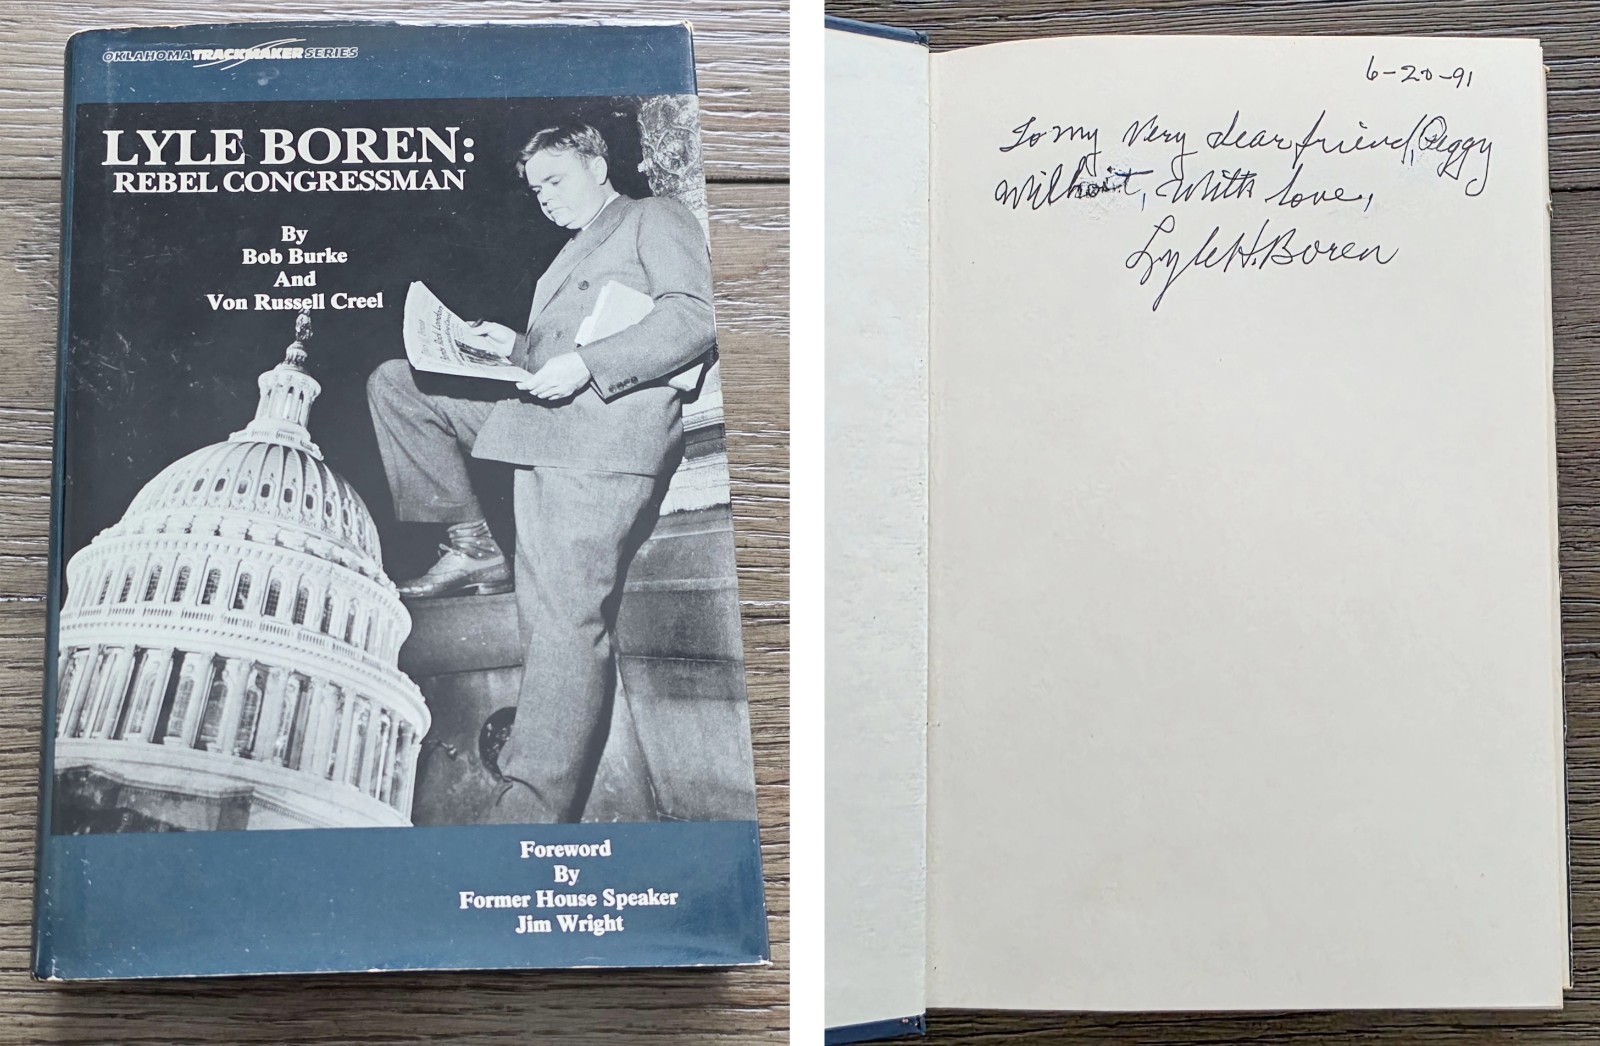 OKLAHOMA TRACKMAKER SERIES
LYLE BOREN:
REBEL CONGRESSMAN
By
Bob Burke
And
Von Russell Creel
Foreword
By
Former House Speaker
Jim Wright
6-20-91
To my Very dear friend, Peggy
Wilhoit, With love,
Lyle H. Boren